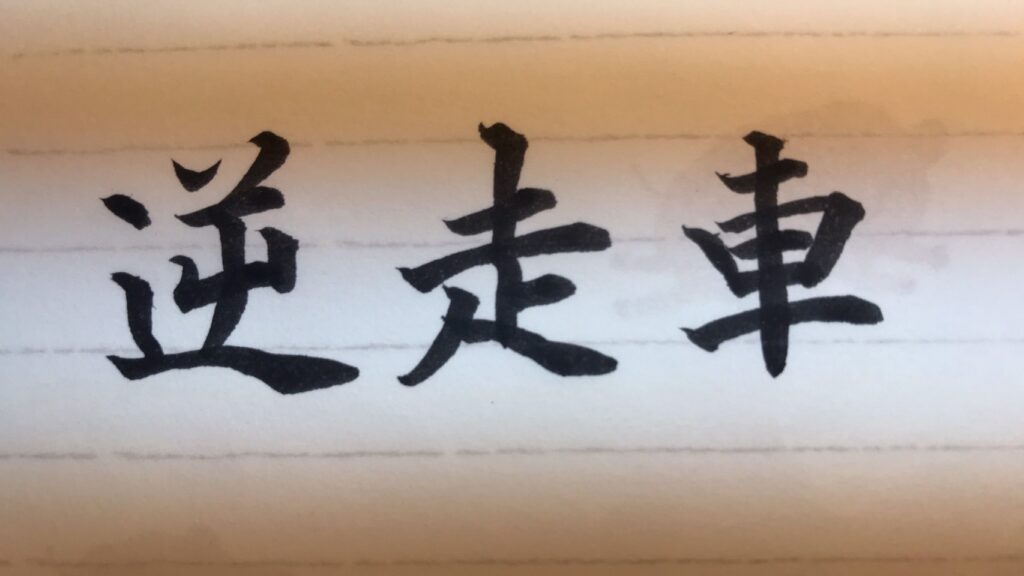 逆走車